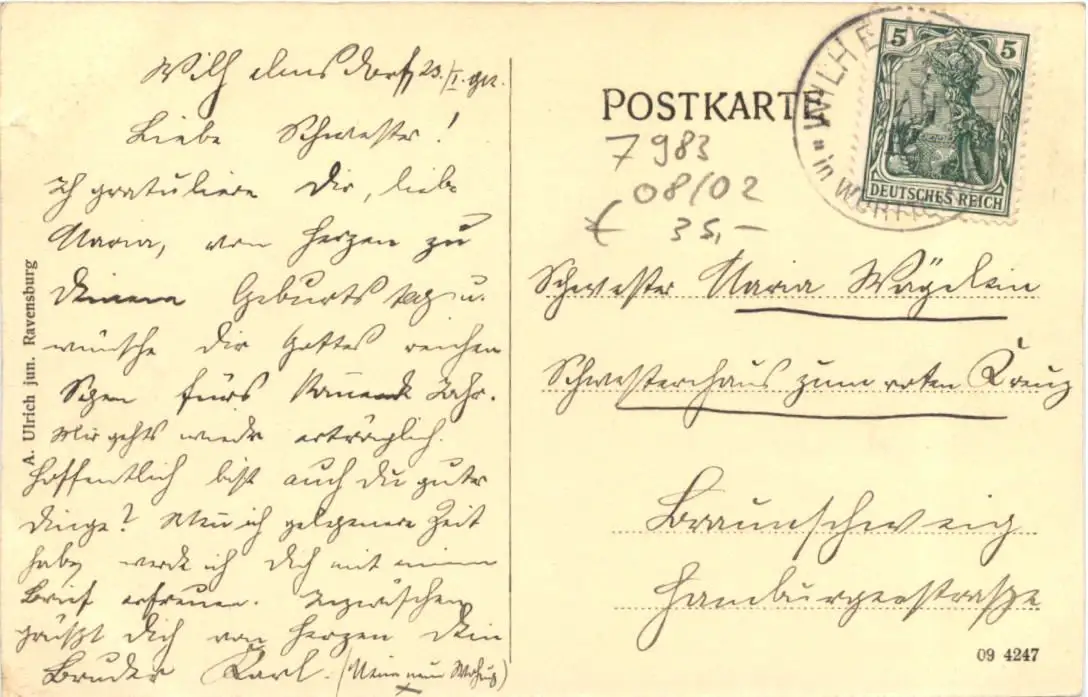 Wilhelmsdorf, 23./I. 
Liebe Schwester!
Ich gratuliere Dir, liebe
Maria, von Herzen zu
Deinem Geburtstag u.
wünsche Dir Gottes reichen
Segen fürs kommende Jahr.
Mir gehts wieder erträglich.
Hoffentlich bist auch Du guter
Dinge? Wenn ich gelegenere Zeit
habe, werde ich Dich mit einem
Brief erfreuen. Inzwischen
grüßt Dich von Herzen Dein
Bruder Karl. (Meine neue Wohng)
A. Ulrich jun. Ravensburg
POSTKARTE
7983
08/02
€ 35,-
WILHELM
in WÜRTT
5 5
DEUTSCHES REICH
Schwester Maria Wägelein
Schwesternhaus zum roten Kreuz
Braunschweig
Hamburgerstraße
09 4247